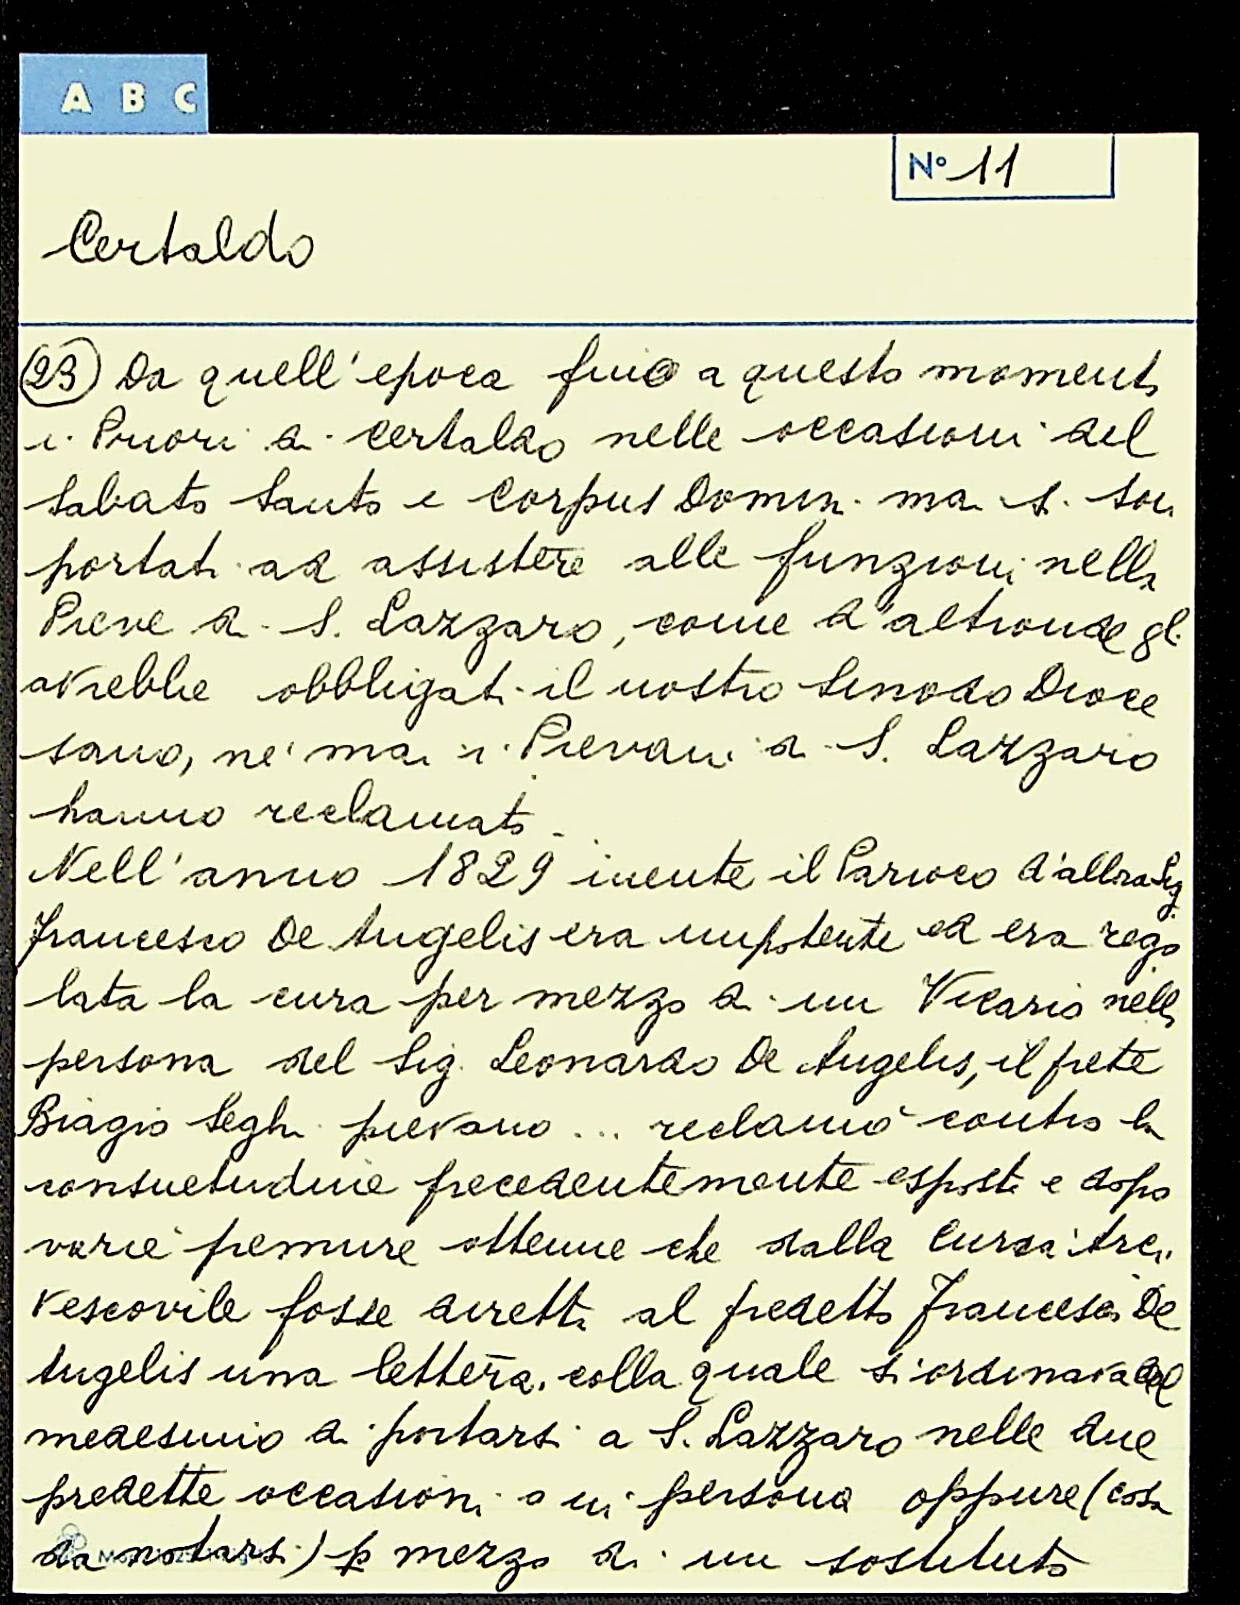 A B C
N° 11
Certaldo
(23) Da quell'epoca fino a questo momento
i Priori di Certaldo nelle occasioni del
Sabato Santo e Corpus Domini mai si son
portati ad assistere alle funzioni nella
Pieve di S. Lazzaro, come d'altronde gli
avrebbe obbligati il nostro Sinodo Dioce
sano, nè mai i Pievani di S. Lazzaro
hanno reclamato.
Nell'anno 1829 mente il Parroco d'allora Sig.
Francesco De Angelis era impotente ed era rego
lata la cura per mezzo di un Vicario nella
persona del Sig. Leonardo De Angelis, il prete
Biagio Seghi pievano ... reclamò contro la
consuetudine precedentemente esposta e dopo
varie premure ottenne che dalla Curia Arci
vescovile fosse diretta al predetto Francesco De
Angelis una lettera, colla quale si ordinava al
medesimo di portarsi a S. Lazzaro nelle due
predette occasioni o in persona oppure (cosa
da notarsi) p mezzo di un sostituto